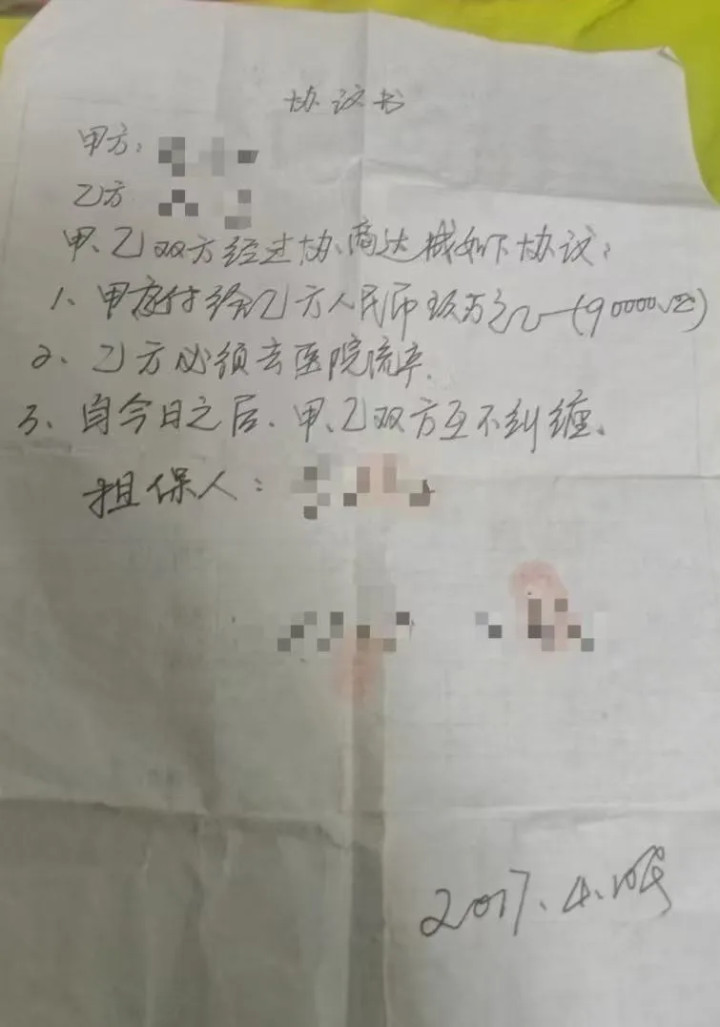 协议书
甲方：
乙方
甲、乙双方经过协商达成如下协议：
1、甲方付给乙方人民币玖万元(90000.00)
2、乙方必须去医院流产.
3、自今日之后、甲、乙双方互不纠缠、
担保人：
2017.4.